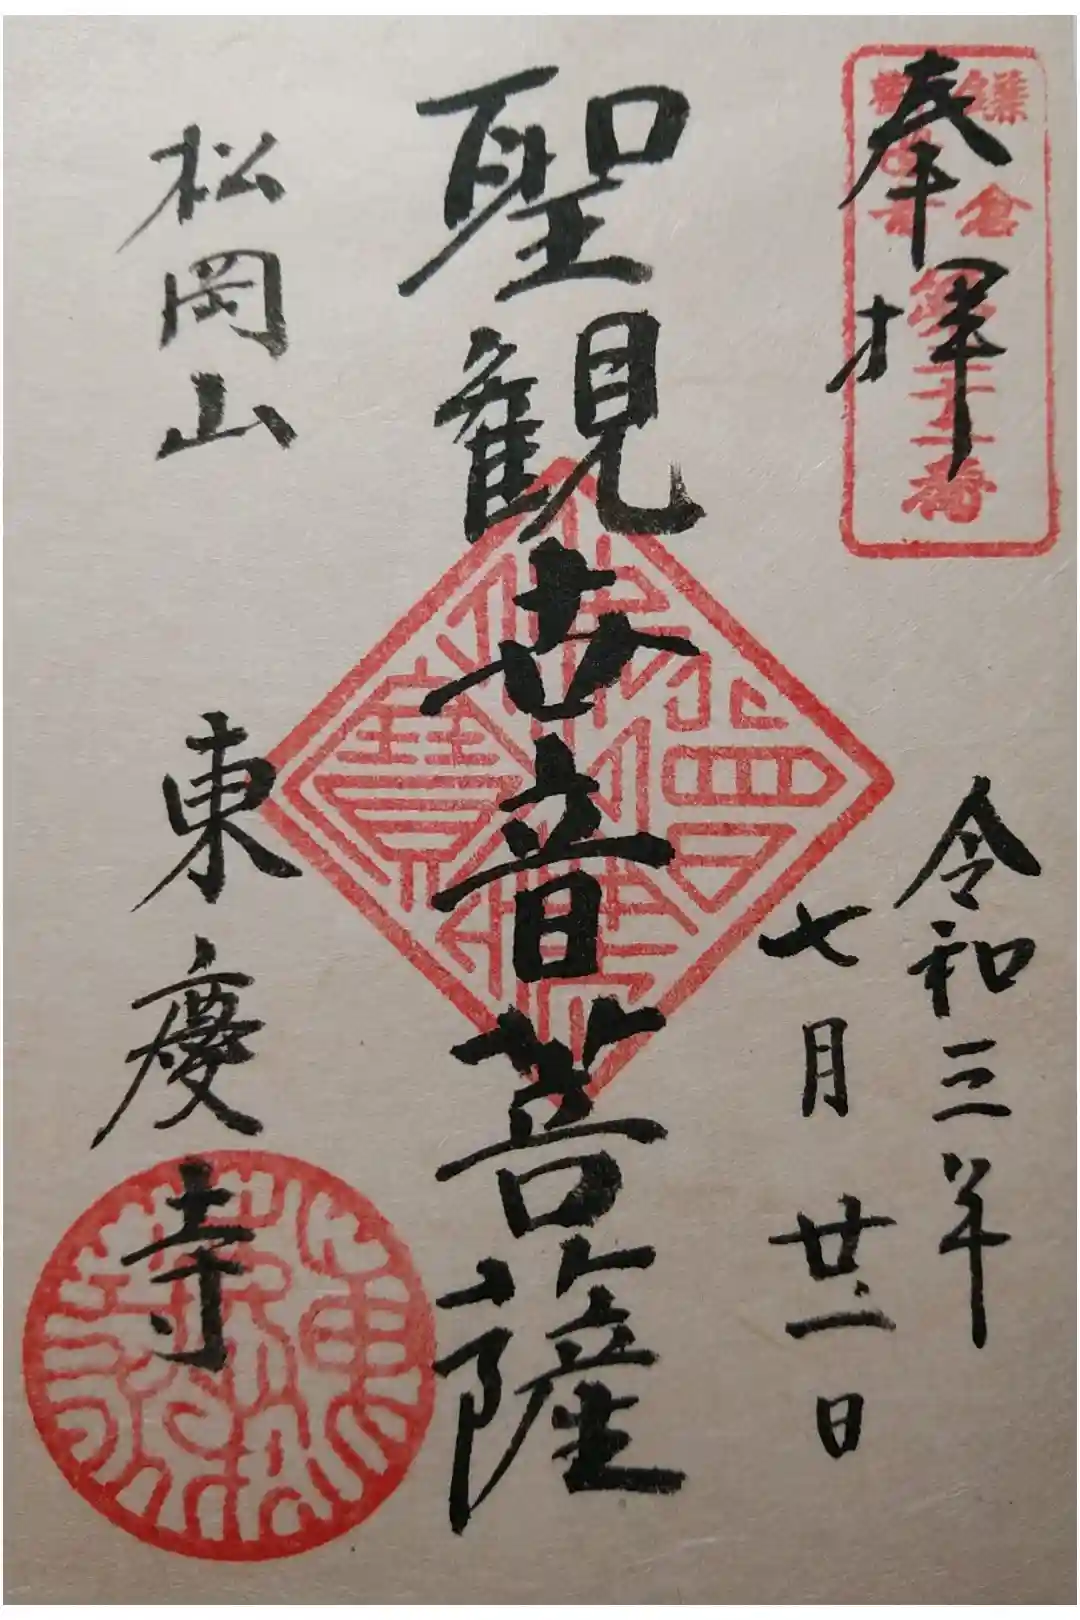 奉拝
鎌倉
観音
第三十二番
令和三年
七月廿一日
聖観世音菩薩
松岡山
東慶寺